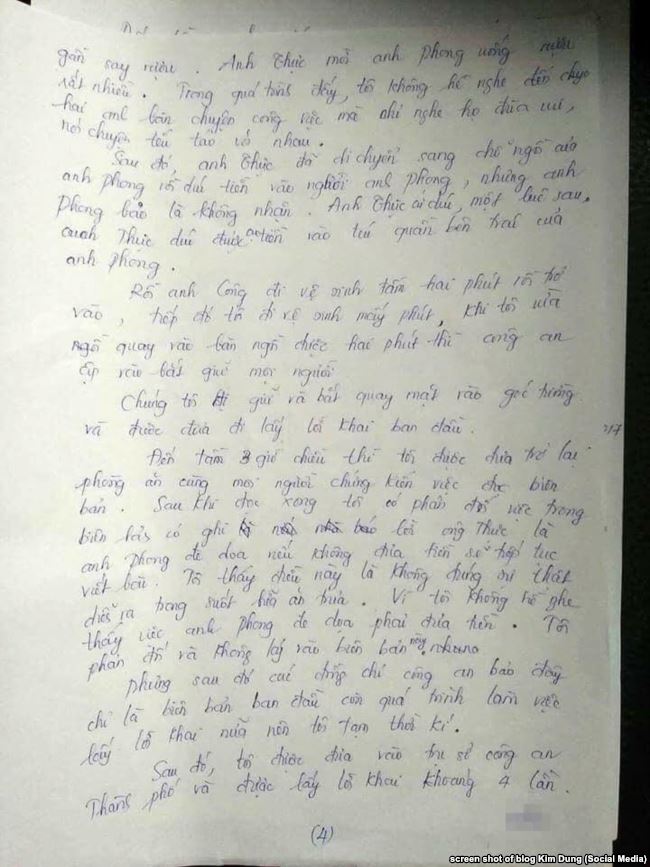 gần say rượu. Anh Thực mời anh Phong uống rượu
rất nhiều. Trong quá trình đấy, tôi không hề nghe đến chuyện
hai anh bàn chuyện công việc mà chỉ nghe họ đùa vui,
nói chuyện tếu táo với nhau.
Sau đó, anh Thực đã di chuyển sang chỗ ngồi của
anh Phong rồi dúi tiền vào người anh Phong, nhưng anh
Phong bảo là không nhận. Anh Thực cứ dúi, một lúc sau,
anh Thực dúi được tiền vào túi quần bên trái của
anh Phong.
Rồi anh Công đi vệ sinh tầm hai phút rồi trở
vào, tiếp đó tôi đi vệ sinh mấy phút, khi tôi vừa
ngồi quay vào bàn ngồi được hai phút thì công an
ập vào bắt giữ mọi người
Chúng tôi bị giữ và bắt quay mặt vào góc tường
và được đưa đi lấy lời khai ban đầu.
Đến tầm 3 giờ chiều thì tôi được đưa trở lại
phòng ăn cùng mọi người chứng kiến việc đọc biên
bản. Sau khi đọc xong tôi có phản đối việc trong
biên bản có ghi lời ông Thực là
anh Phong đe dọa nếu không đưa tiền sẽ tiếp tục
viết bài. Tôi thấy điều này là không đúng sự thật
diễn ra trong suốt bữa ăn trưa. Vì tôi không hề nghe
thấy việc anh Phong đe dọa phải đưa tiền. Tôi
phản đối và không ký vào biên bản này
Nhưng sau đó các đồng chí công an bảo đây
chỉ là biên bản ban đầu còn quá trình làm việc
lấy lời khai nữa nên tôi tạm thời kí.
Sau đó, tôi được đưa vào trụ sở công an
Thành phố và được lấy lời khai khoảng 4 lần.
(4)
screen shot of blog Kim Dung (Social Media)